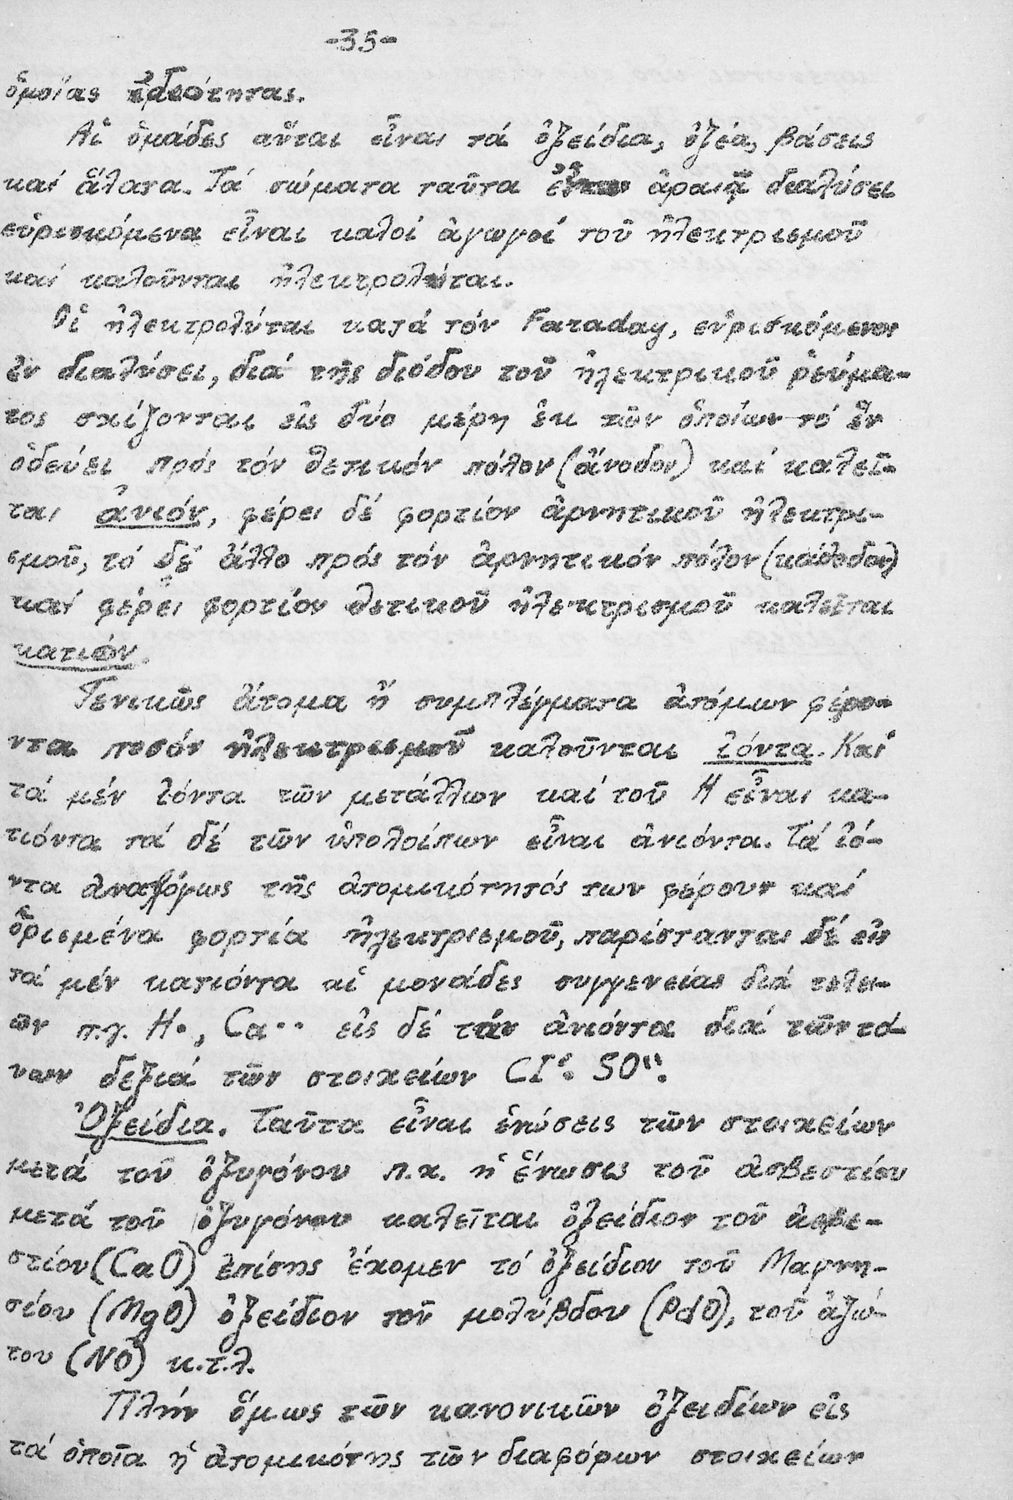 -35-
ὁμοίας ἰδιότητας.
Αἱ ὁμάδες αὗται εἶναι τά ὀξείδια, ὀξέα, βάσεις
καί ἅλατα. Τά σώματα ταῦτα ἐν ἀραιᾷ διαλύσει
εὑρισκόμενα εἶναι καλοί ἀγωγοί τοῦ ἠλεκτρισμοῦ
καί καλοῦνται ἠλεκτρολύται.
Οἱ ἠλεκτρολύται κατά τόν Faraday, εὑρισκόμενοι
ἐν διαλύσει, διά τῆς διόδου τοῦ ἠλεκτρικοῦ ρεύμα-
τος σχίζονται εἰς δύο μέρη ἐκ τῶν ὁποίων τό ἕν
ὁδεύει πρός τόν θετικόν πόλον (ἄνοδον) καί καλεῖ-
ται ἀνιόν, φέρει δέ φορτίον ἀρνητικοῦ ἠλεκτρι-
σμοῦ, τό δέ ἄλλο πρός τόν ἀρνητικόν πόλον (κάθοδον)
καί φέρει φορτίον θετικοῦ ἠλεκτρισμοῦ καλεῖται
κατιόν.
Γενικῶς ἄτομα ἤ συμπλέγματα ἀτόμων φέρο-
ντα ποσόν ἠλεκτρισμοῦ καλοῦνται ἰόντα. Καί
τά μέν ἰόντα τῶν μετάλλων καί τοῦ Η εἶναι κα-
τιόντα τά δέ τῶν ὑπολοίπων εἶναι ἀνιόντα. Τά ἰό-
ντα ἀναλόγως τῆς ἀτομικότητός των φέρουν καί
ὁρισμένα φορτία ἠλεκτρισμοῦ, παρίστανται δέ εἰς
τά μέν κατιόντα αἱ μονάδες συγγενείας διά τελει-
ῶν π.χ. H•, Ca•• εἰς δέ τάν ἀνιόντα διά τῶν τό-
νων δεξιά τῶν στοιχείων CI'. SO''.
Ὀξείδια. Ταῦτα εἶναι ἑνώσεις τῶν στοιχείων
μετά τοῦ ὀξυγόνου π.χ. ἡ ἕνωσις τοῦ ἀσβεστίου
μετά τοῦ ὀξυγόνου καλεῖται ὀξείδιον τοῦ ἀσβε-
στίου (CaO) ἐπίσης ἔχομεν τό ὀξείδιον τοῦ Μαγνη-
σίου (MgO) ὀξείδιον τοῦ μολύβδου (PdO), τοῦ ἀζώ-
του (NO) κ.τ.λ.
Πλήν ὅμως τῶν κανονικῶν ὀξειδίων εἰς
τά ὁποῖα ἡ ἀτομικότης τῶν διαφόρων στοιχείων